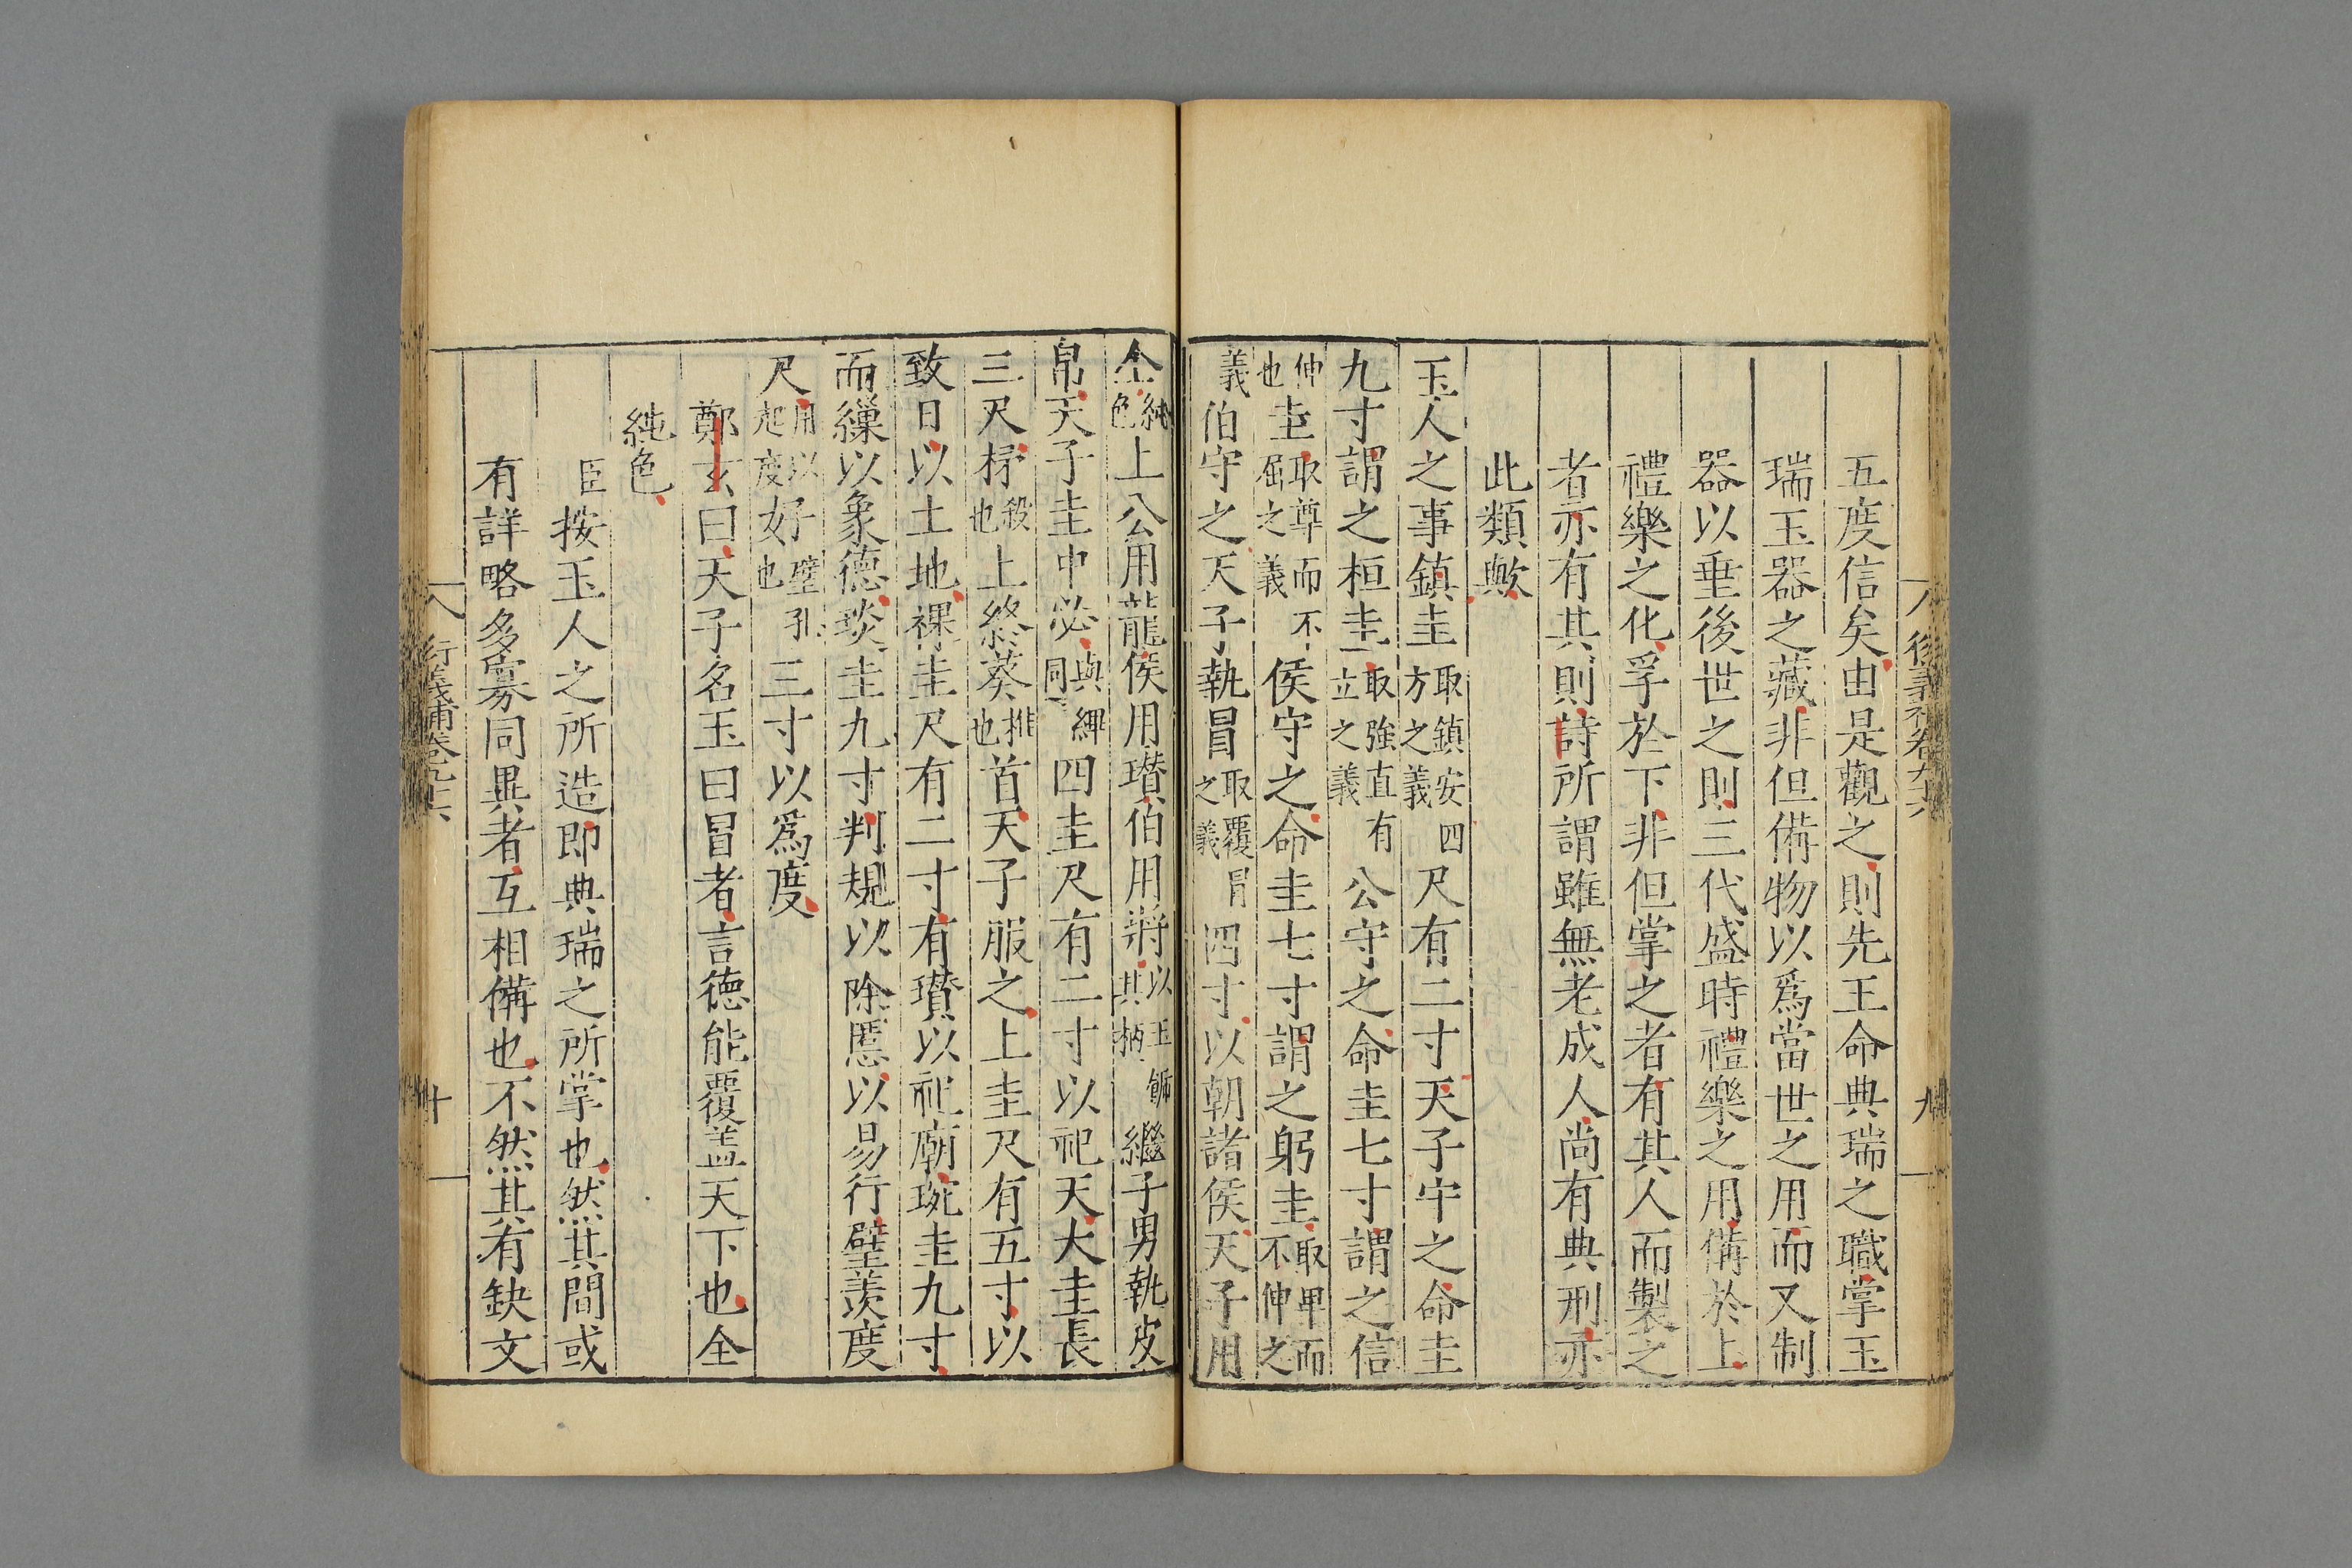 五度信矣由是觀之則先王命典瑞之職掌玉
瑞玉器之藏非但備物以爲當世之用而又制
器以垂後世之則三代盛時禮樂之用備於上
禮樂之化孚於下非但掌之者有其人而製之
者亦有其則詩所謂雖無老成人尚有典刑亦
此類歟
玉人之事鎮圭取鎮安四方之義尺有二寸天子守之命圭
九寸謂之桓圭取強直有立之義公守之命圭七寸謂之信
圭取尊而不屈之義侯守之命圭七寸謂之躬圭取卑而不伸之
義伯守之天子執冒取覆冒之義四寸以朝諸侯天子用
全純色上公用龍侯用瓚伯用將以玉飾其柄繼子男執皮
帛天子圭中必與繂同四圭尺有二寸以祀天大圭長
三尺杼殺也上終葵椎也首天子服之上圭尺有五寸以
致日以土地祼圭尺有二寸有瓚以祀廟琬圭九寸
而繅以象德琰圭九寸判規以除慝以易行璧羨度
尺用以起度好璧孔也三寸以爲度
鄭玄曰天子名玉曰冒者言德能覆盖天下也全
純色
臣按玉人之所造即典瑞之所掌也然其間或
有詳略多寡同異者互相備也不然其有缺文